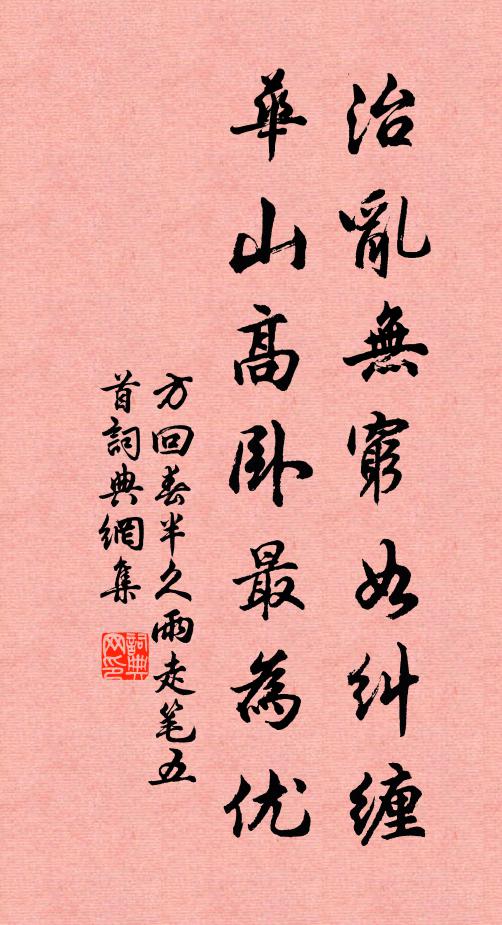 治亂無窮如糾缠
華山高卧最為优
方回春半久雨走笔五
首詞典網集
詞典網印